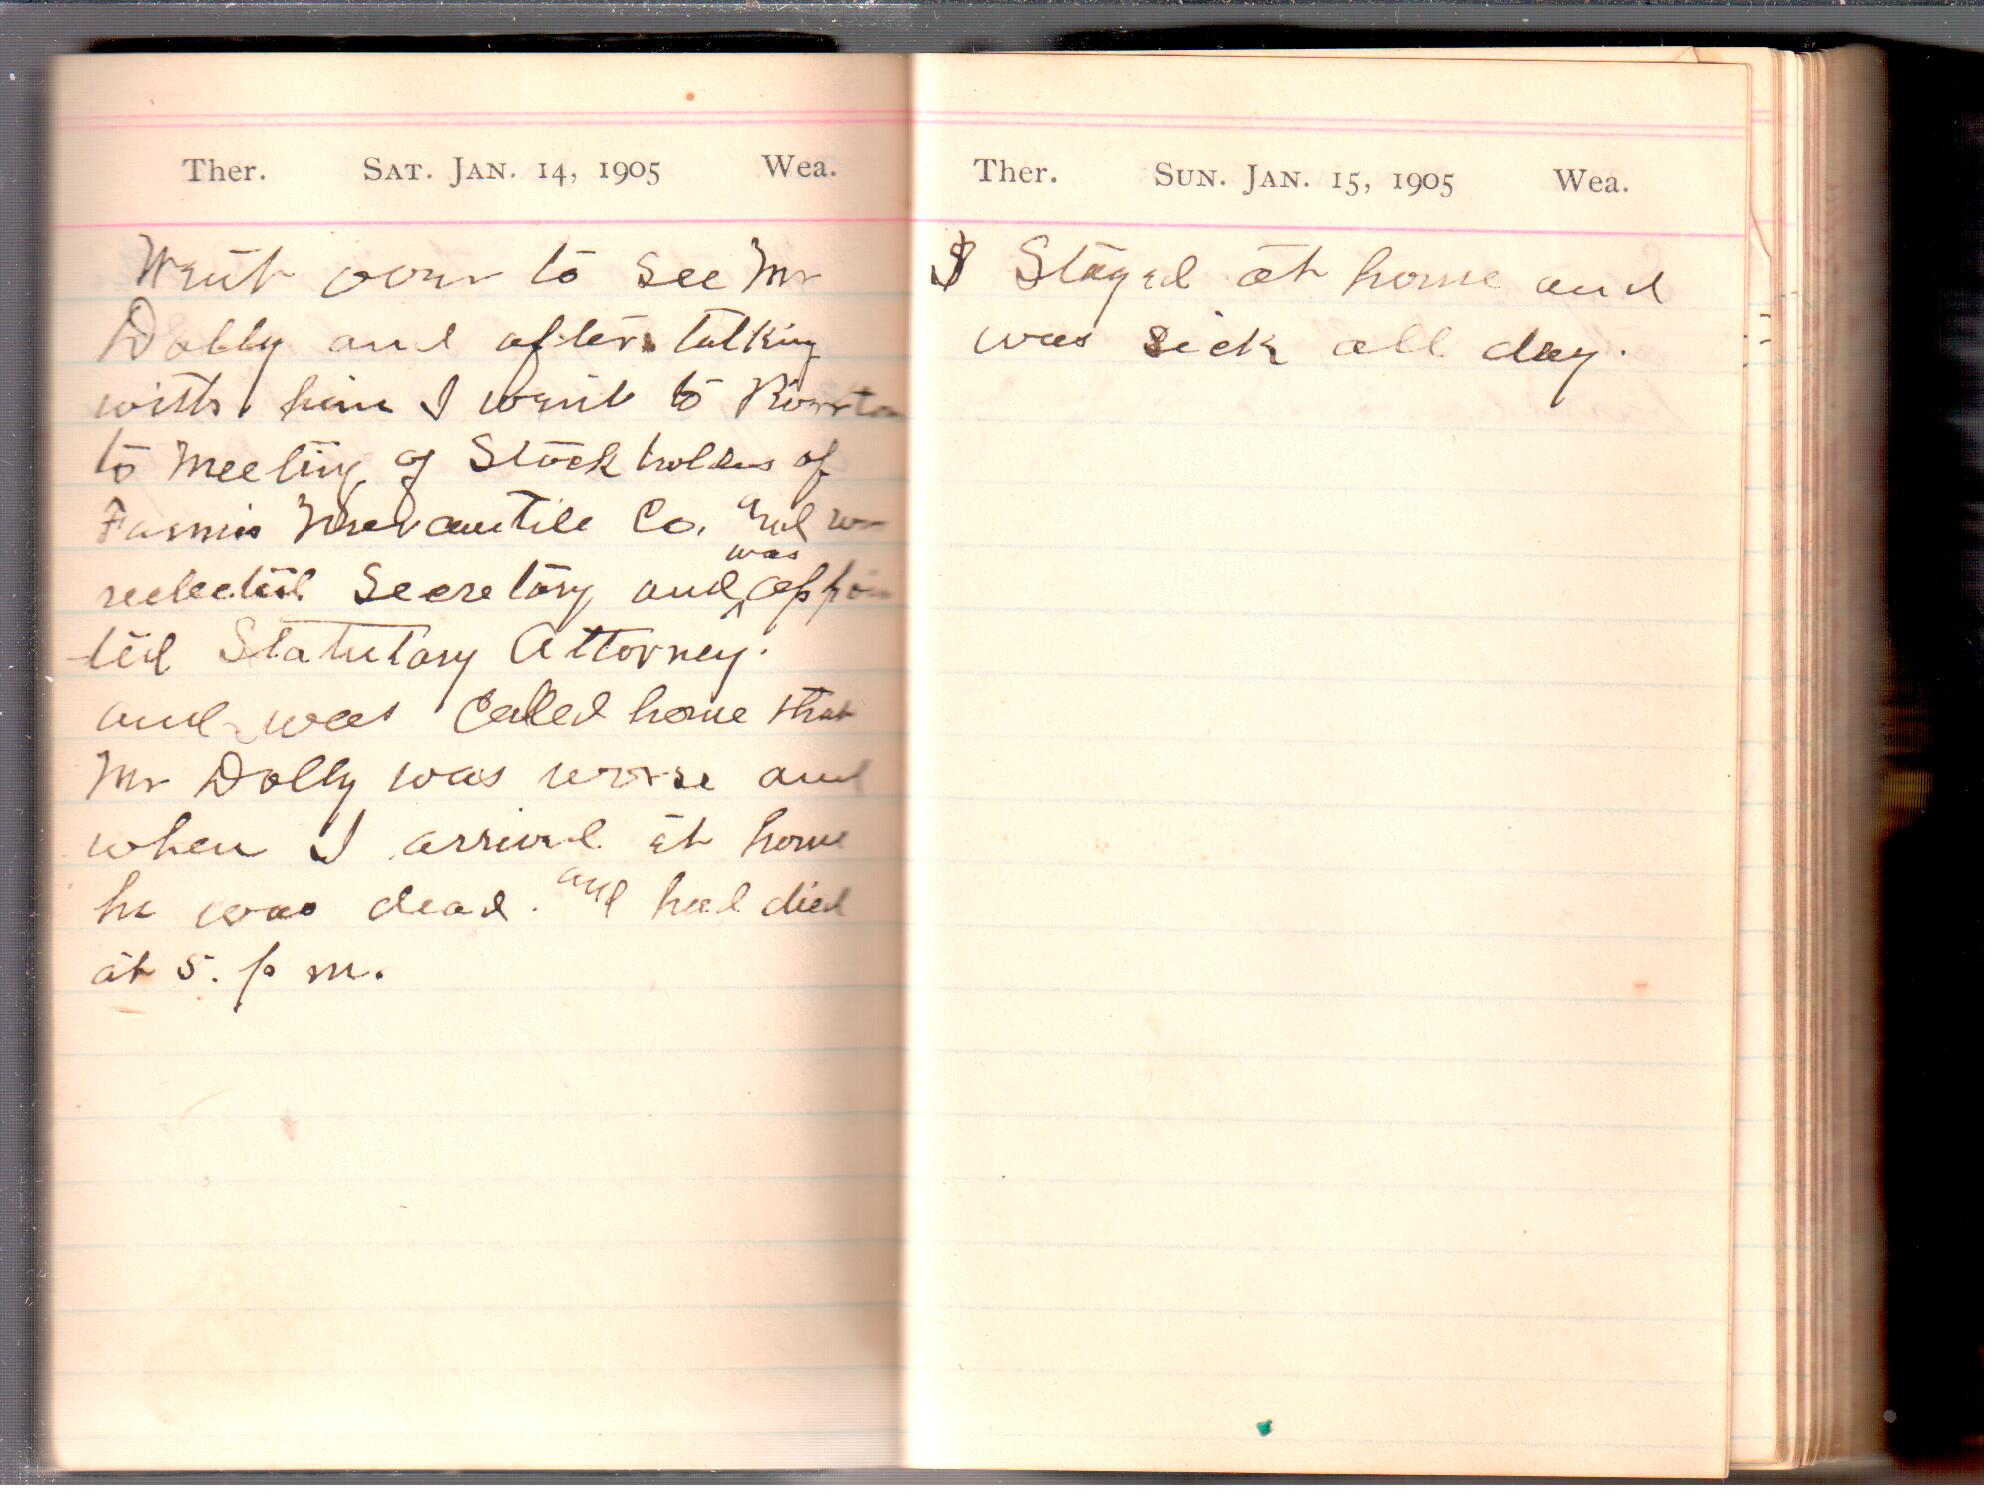 Ther. SAT. JAN. 14, 1905 Wea.
Went over to see Mr
Dolly and after talking
with him I went to
to Meeting of Stock holders of
Farmers Mercantile Co. and was
reelected Secretary and was appoin
ted Statutary Attorney.
and was Called home that
Mr Dolly was worse and
when I arrived at home
he was dead. and had died
at 5. p m.
Ther. SUN. JAN. 15, 1905 Wea.
Stayed at home and
was sick all day.